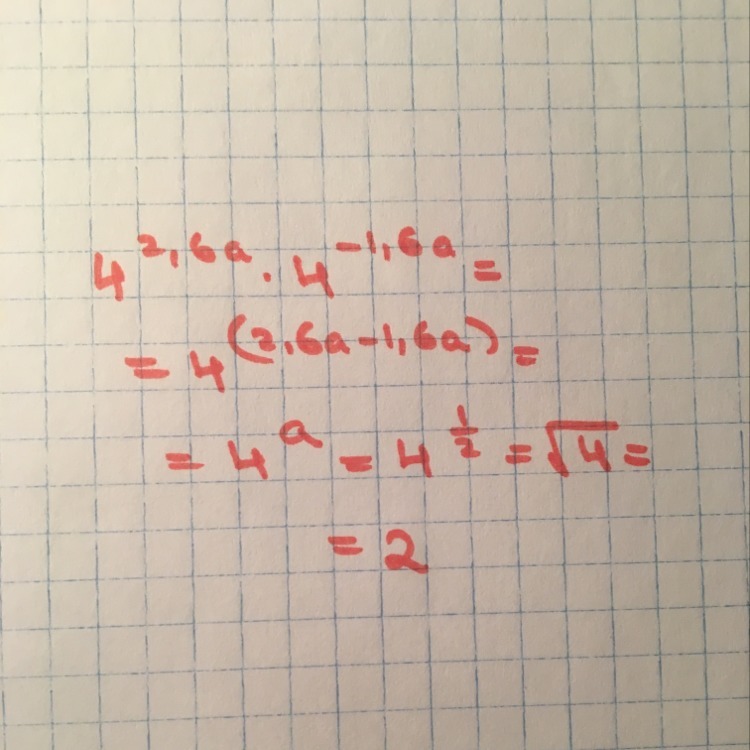 4^{2,6a} · 4^{-1,6a} =
= 4^{(2,6a-1,6a)} =
= 4^{a} = 4^{\frac{1}{2}} = \sqrt{4} =
= 2